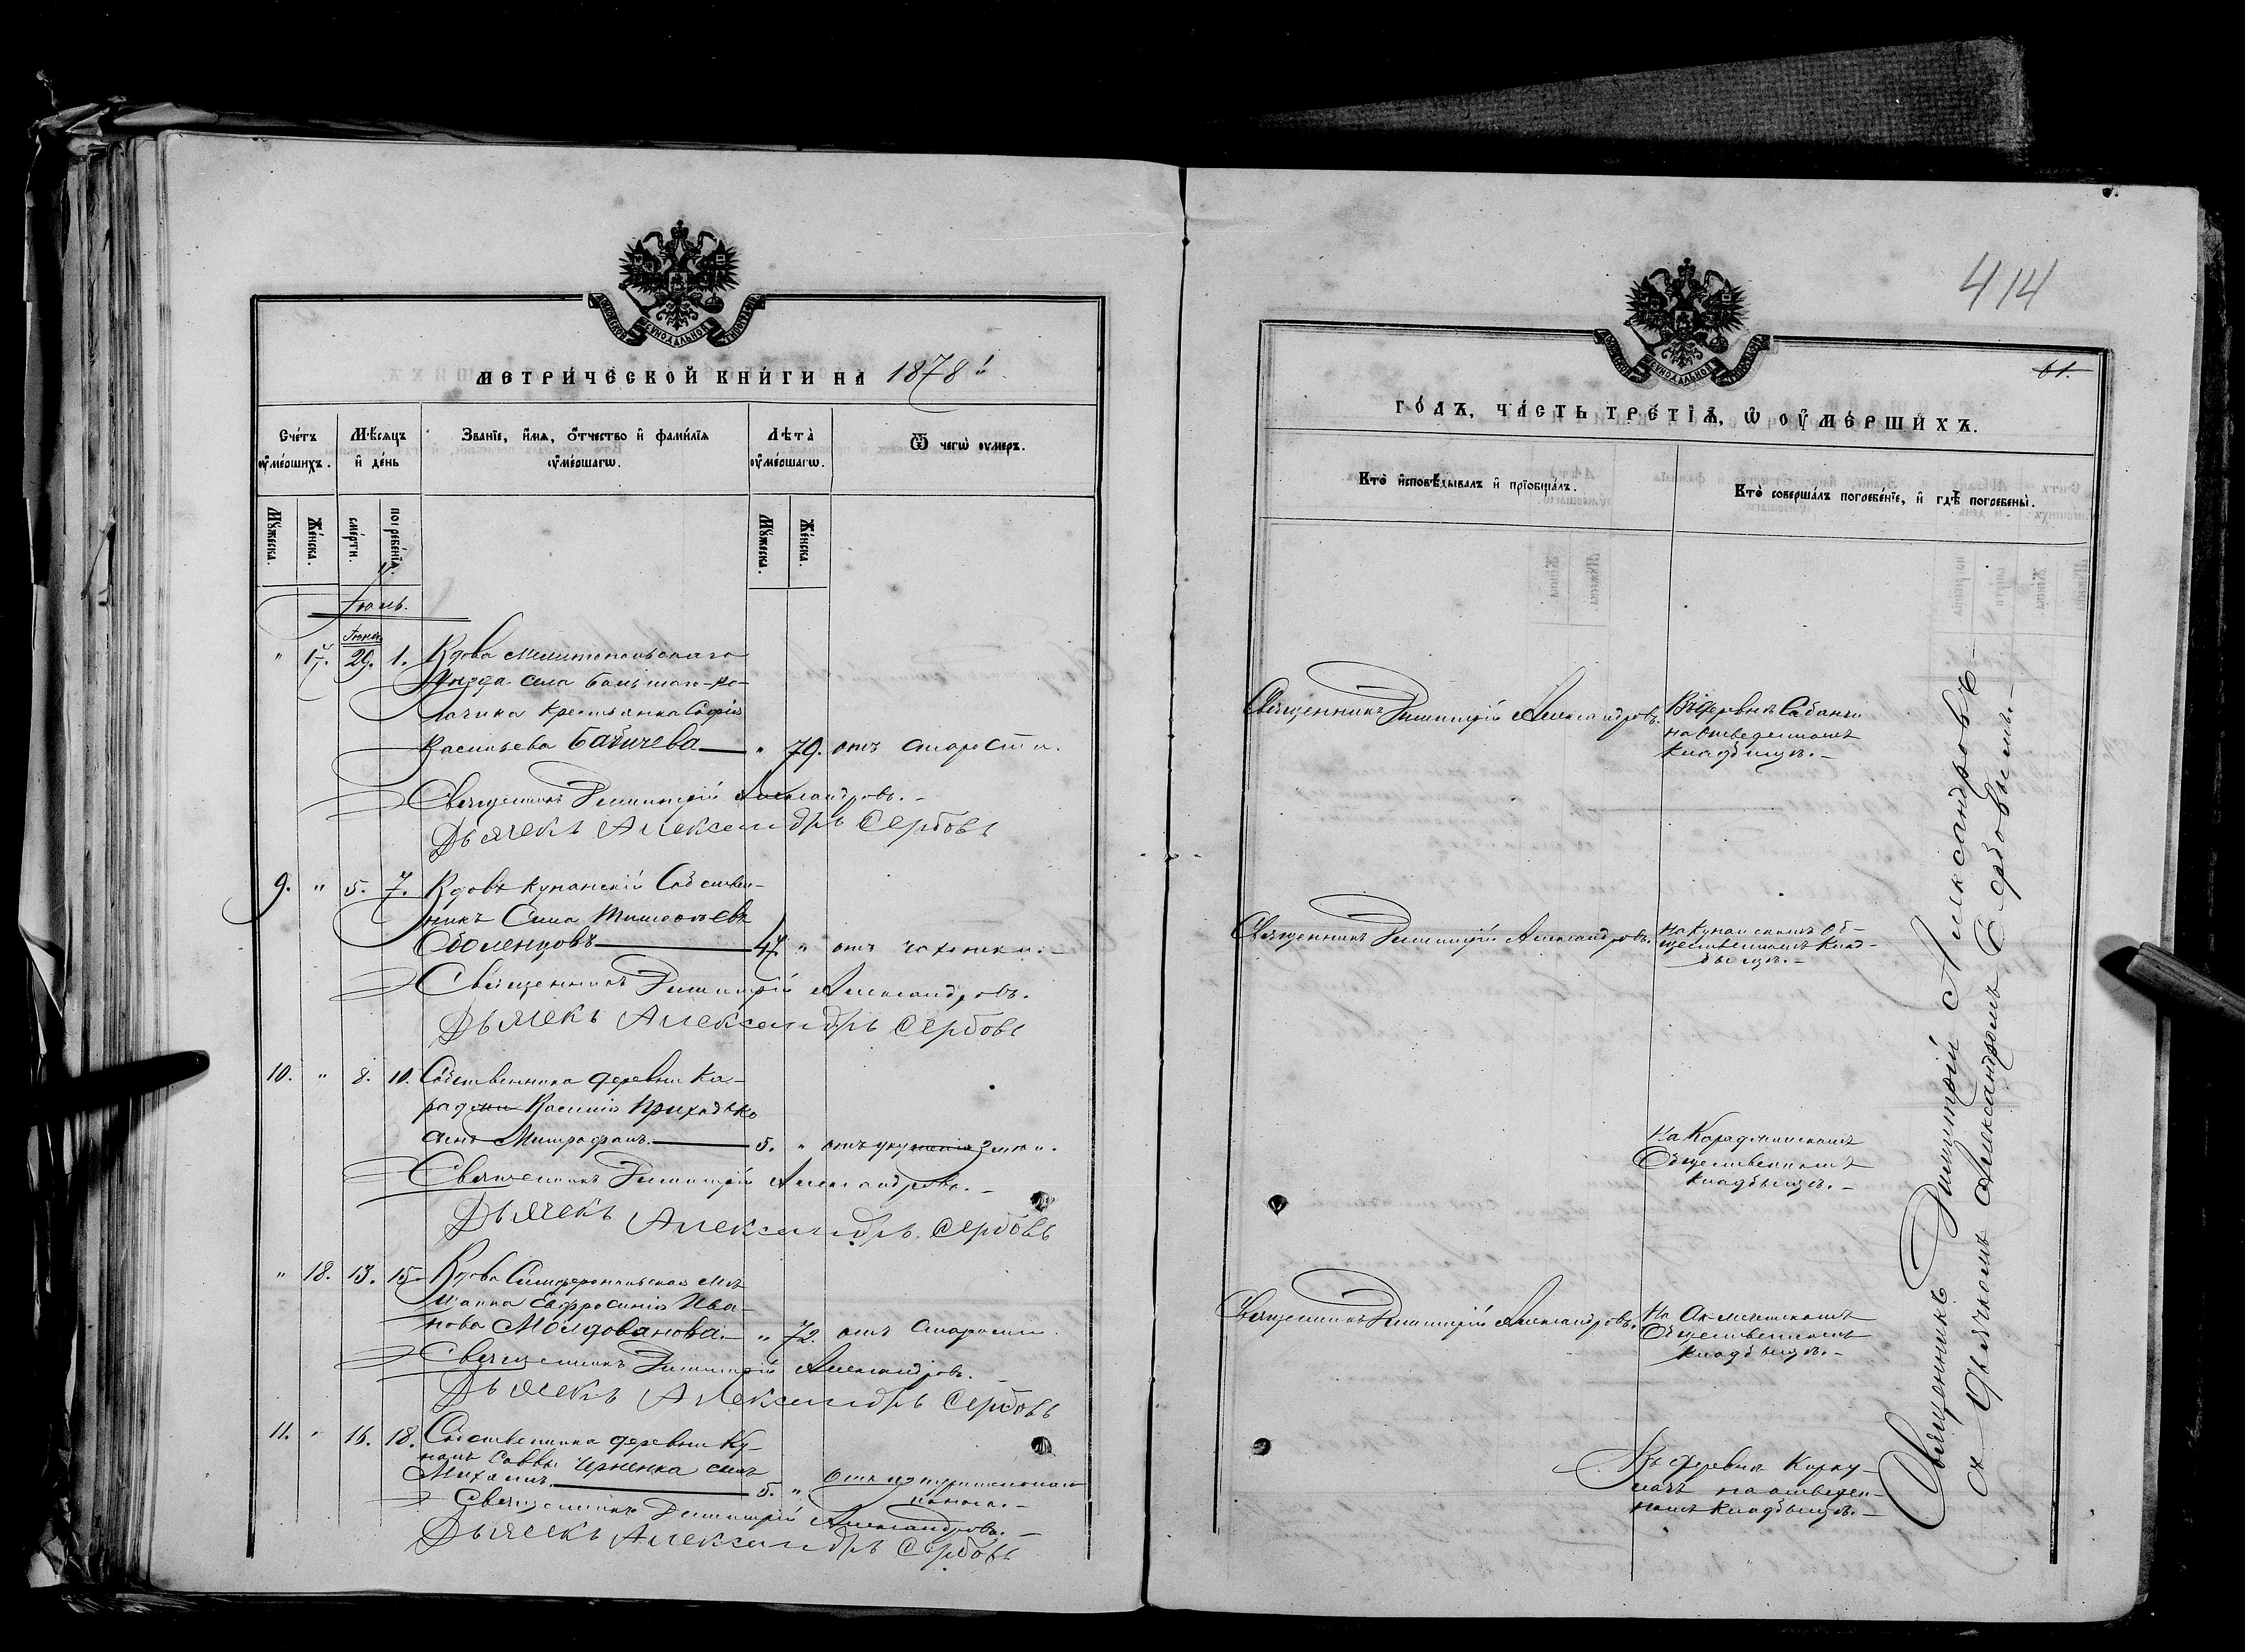 МОСКОВСКОЙ СѴНОДАЛЬНОЙ ТИПОГРАФІИ
МЕТРИ́ЧЕСКОЙ КНИ́ГИ НА 1878 й
Счéтъ ᲂу҆мéршихъ.
Мѣ́сѧцъ и҆ дéнь
Звáнїе, и҆́мѧ, ѻ҆́тчество и҆ фами́лїѧ ᲂу҆мéршагѡ.
Лѣ̑та̀ ᲂу҆мéршагѡ.
Ѿ чегѡ̀ ᲂу҆́меръ.
Мꙋ́жеска.
Же́нска.
смéрти.
погребéнїѧ.
Мꙋ́жеска.
Же́нска.
Іюль.
Іюня
" 17. 29. 1. Вдова Мелитопольскаго
Уѣзда села Большаго-
крестьянка Софія
Васильева Бабичева " 79. отъ старости.
Священникъ Димитрій Александровъ.
Дьячекъ Александръ Сербовъ
9. " 5. 7. Вдовъ Купанскій Собствен-
никъ Сила Тимофѣевъ
Оболенцовъ 47. " отъ чахотки.
Священникъ Димитрій Александровъ.
Дьячекъ Александръ Сербовъ
10. " 8. 10. Собственника деревни Ка-
раджи Василія Приходько
сынъ Митрофанъ. 5. " отъ укушенія змѣи.
Священникъ Димитрій Александровъ.
Дьячекъ Александръ Сербовъ
" 18. 13. 15. Вдова Симферопольская Мѣ-
щанка Евфросинія Ива-
нова Молдованова. " 72. отъ старости.
Священникъ Димитрій Александровъ.
Дьячекъ Александръ Сербовъ
11. " 16. 18. Собственника деревни Ку-
Саввы Черненка сынъ
Михаилъ. 5. " Отъ
поноса.
Священникъ Димитрій Александровъ.
Дьячекъ Александръ Сербовъ
414
61.
МОСКОВСКОЙ СѴНОДАЛЬНОЙ ТИПОГРАФІИ
ГО́ДЪ, ЧА́СТЬ ТРЕ́ТЇѦ, Ѡ҆ ОУ҆МЕ́РШИХЪ.
Кто̀ и҆сповѣ́дывалъ и҆ прїѡбща́лъ.
Кто̀ соверша́лъ погребéнїе, и҆ гдѣ̀ погребены̀.
Священникъ Димитрій Александровъ. Въ деревнѣ
на отведенномъ
кладбищѣ.
Священникъ Димитрій Александровъ. На Купанскомъ Об-
щественномъ Клад-
бищѣ.
На Караджинскомъ
Общественномъ
кладбищѣ.
Священникъ Димитрій Александровъ. На Акмечетскомъ
Общественномъ
кладбищѣ.
Въ деревнѣ
на отведен-
номъ кладбищѣ.
Священникъ Димитрій Александровъ
съ Дьячкомъ Александромъ Сербовымъ.